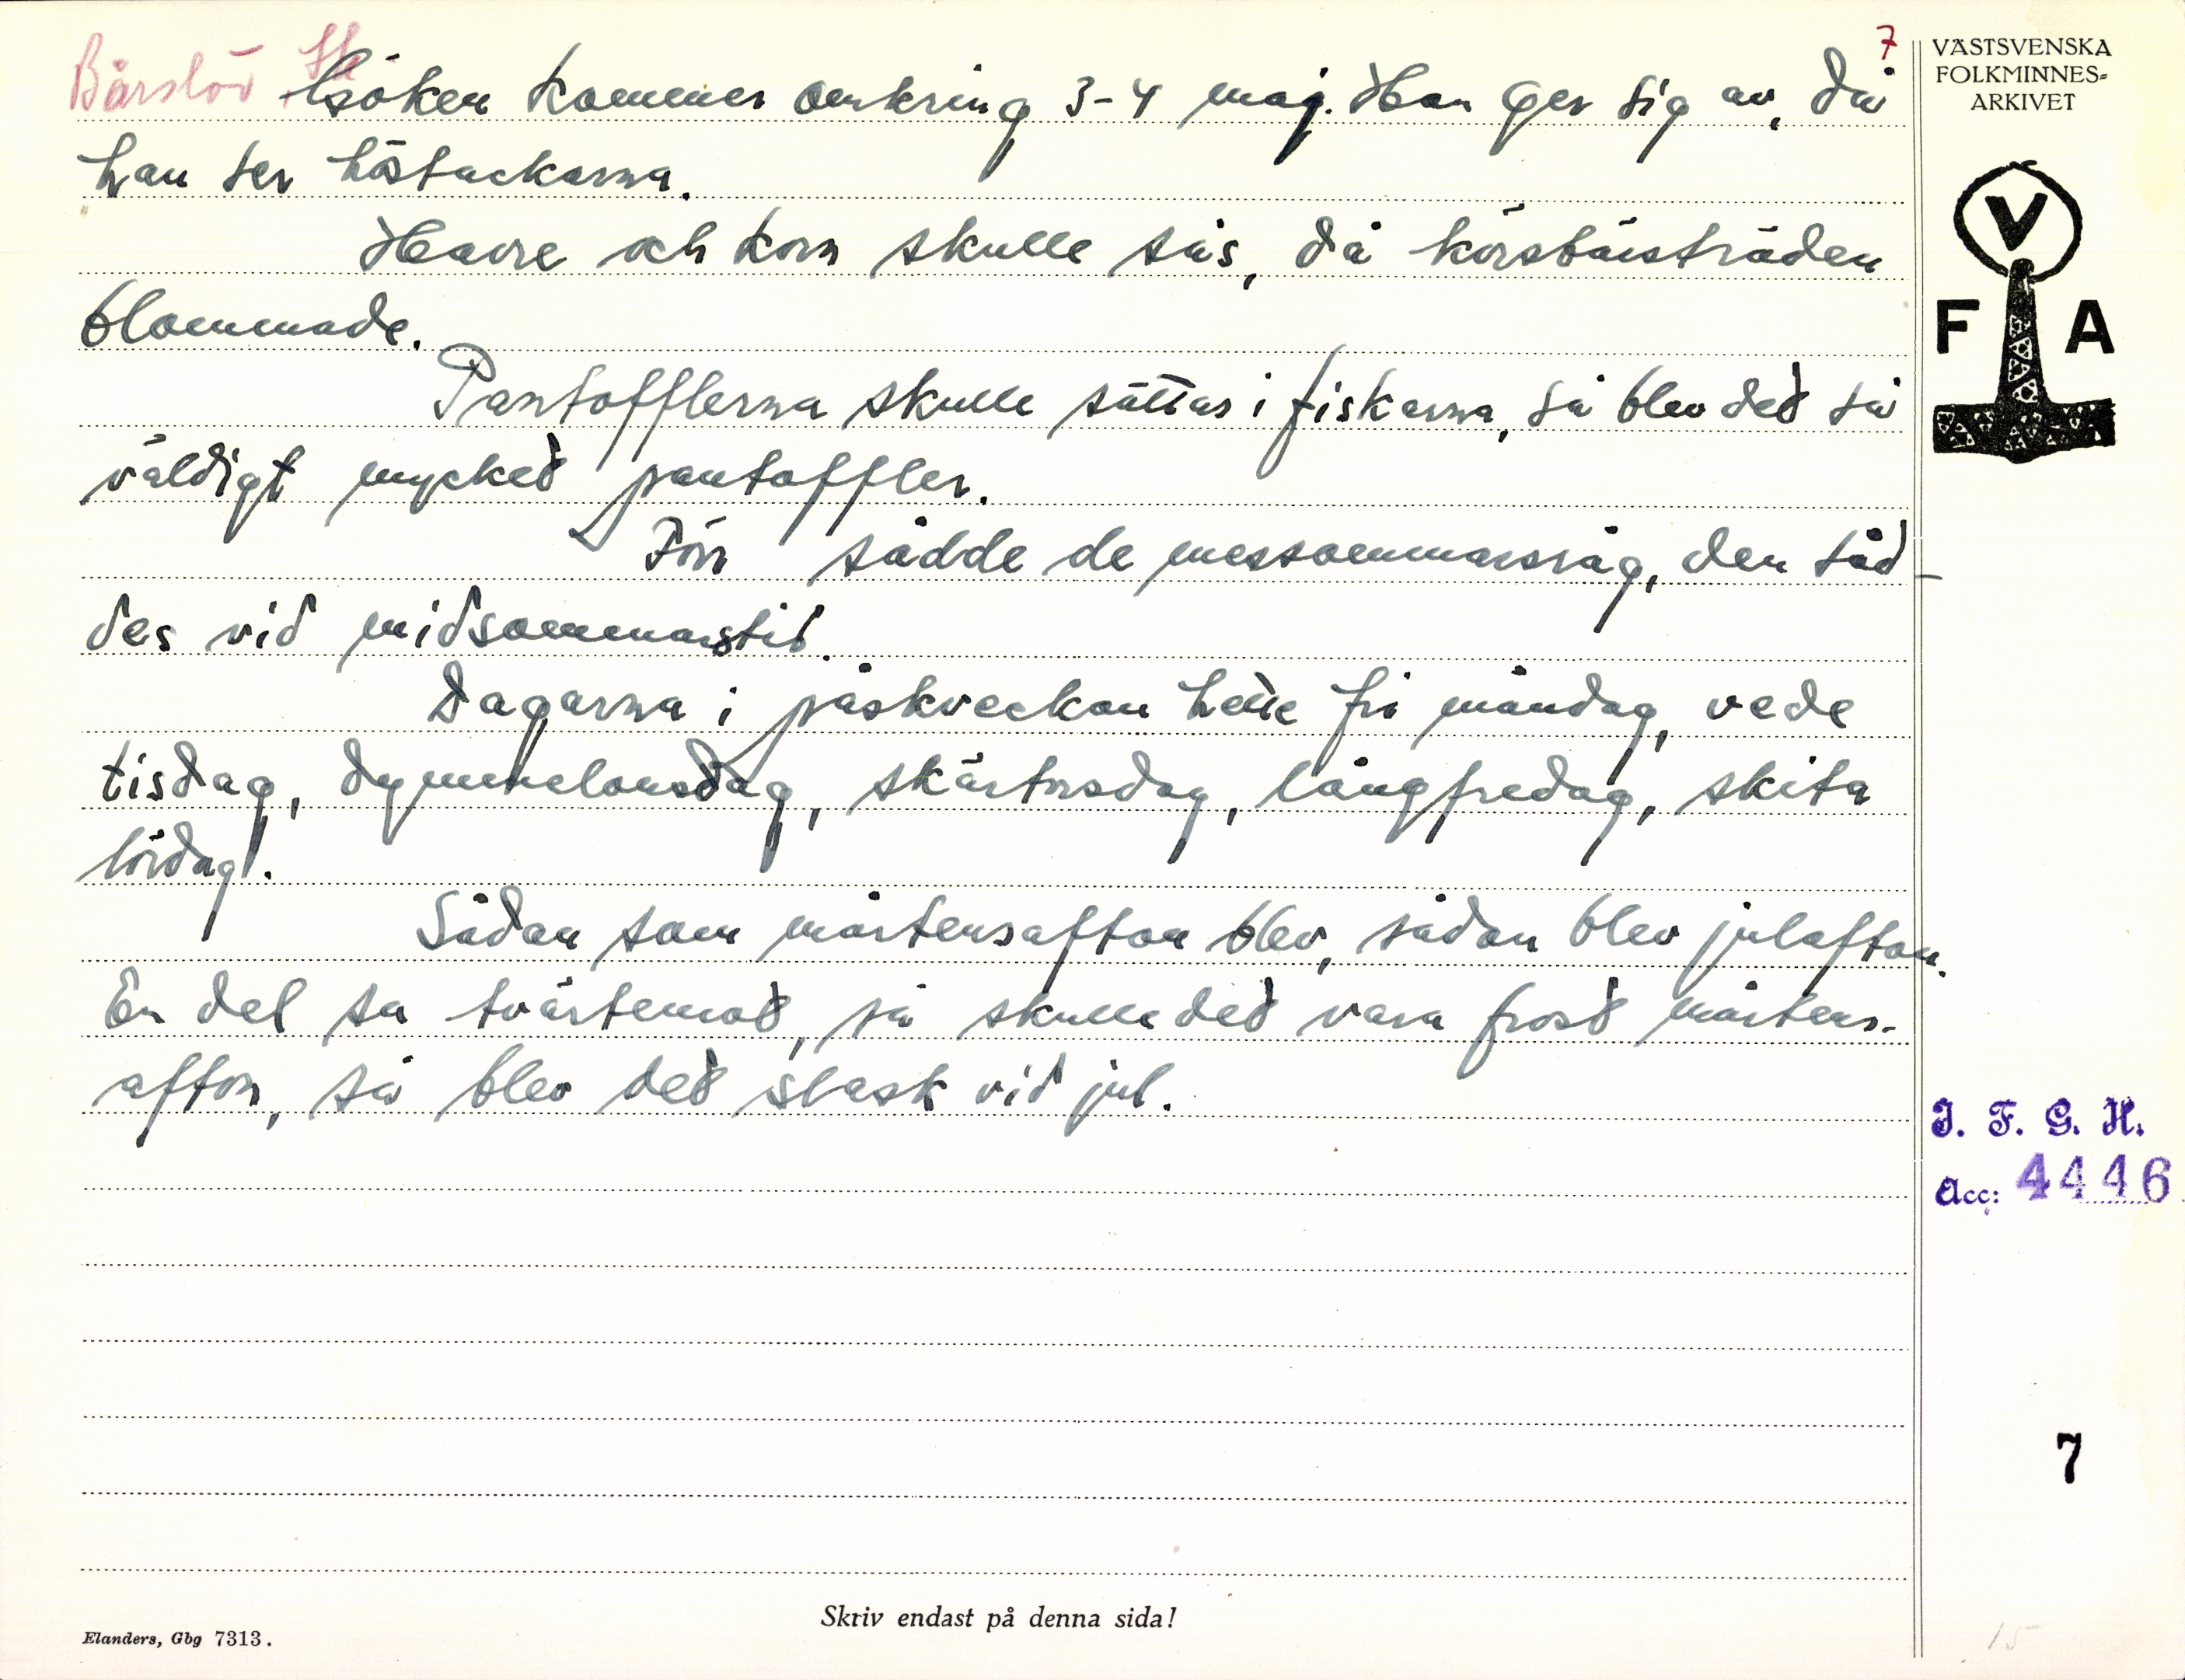 Bårslöv Sk
7
Göken kommer omkring 3-4 maj. Han ger sig av, då
han ser höstackarna.
Havre och korn skulle sås, då körsbärsträden
blommade.
Pantofflerna skulle sättas i fiskarna, så blev ded så
väldigt mycked pantoffler.
Förr sådde de messommarsråg, den såd-
des vid midsommarstid.
Dagarna i påskveckan hette fri måndag, vede
tisdag, dymmelonsdag, skärtorsdag, långfredag, skita
lördag.
Sådan som mårtensafton blev, sådan blev julafton.
En del sa tvärtemod, så skulle ded vara frost mårtens-
afton, så blev ded slask vid jul.
VÄSTSVENSKA
FOLKMINNES-
ARKIVET
V
F A
I. F. G. H.
Acc: 4446
7
Skriv endast på denna sida!
Elanders, Gbg 7313.
15